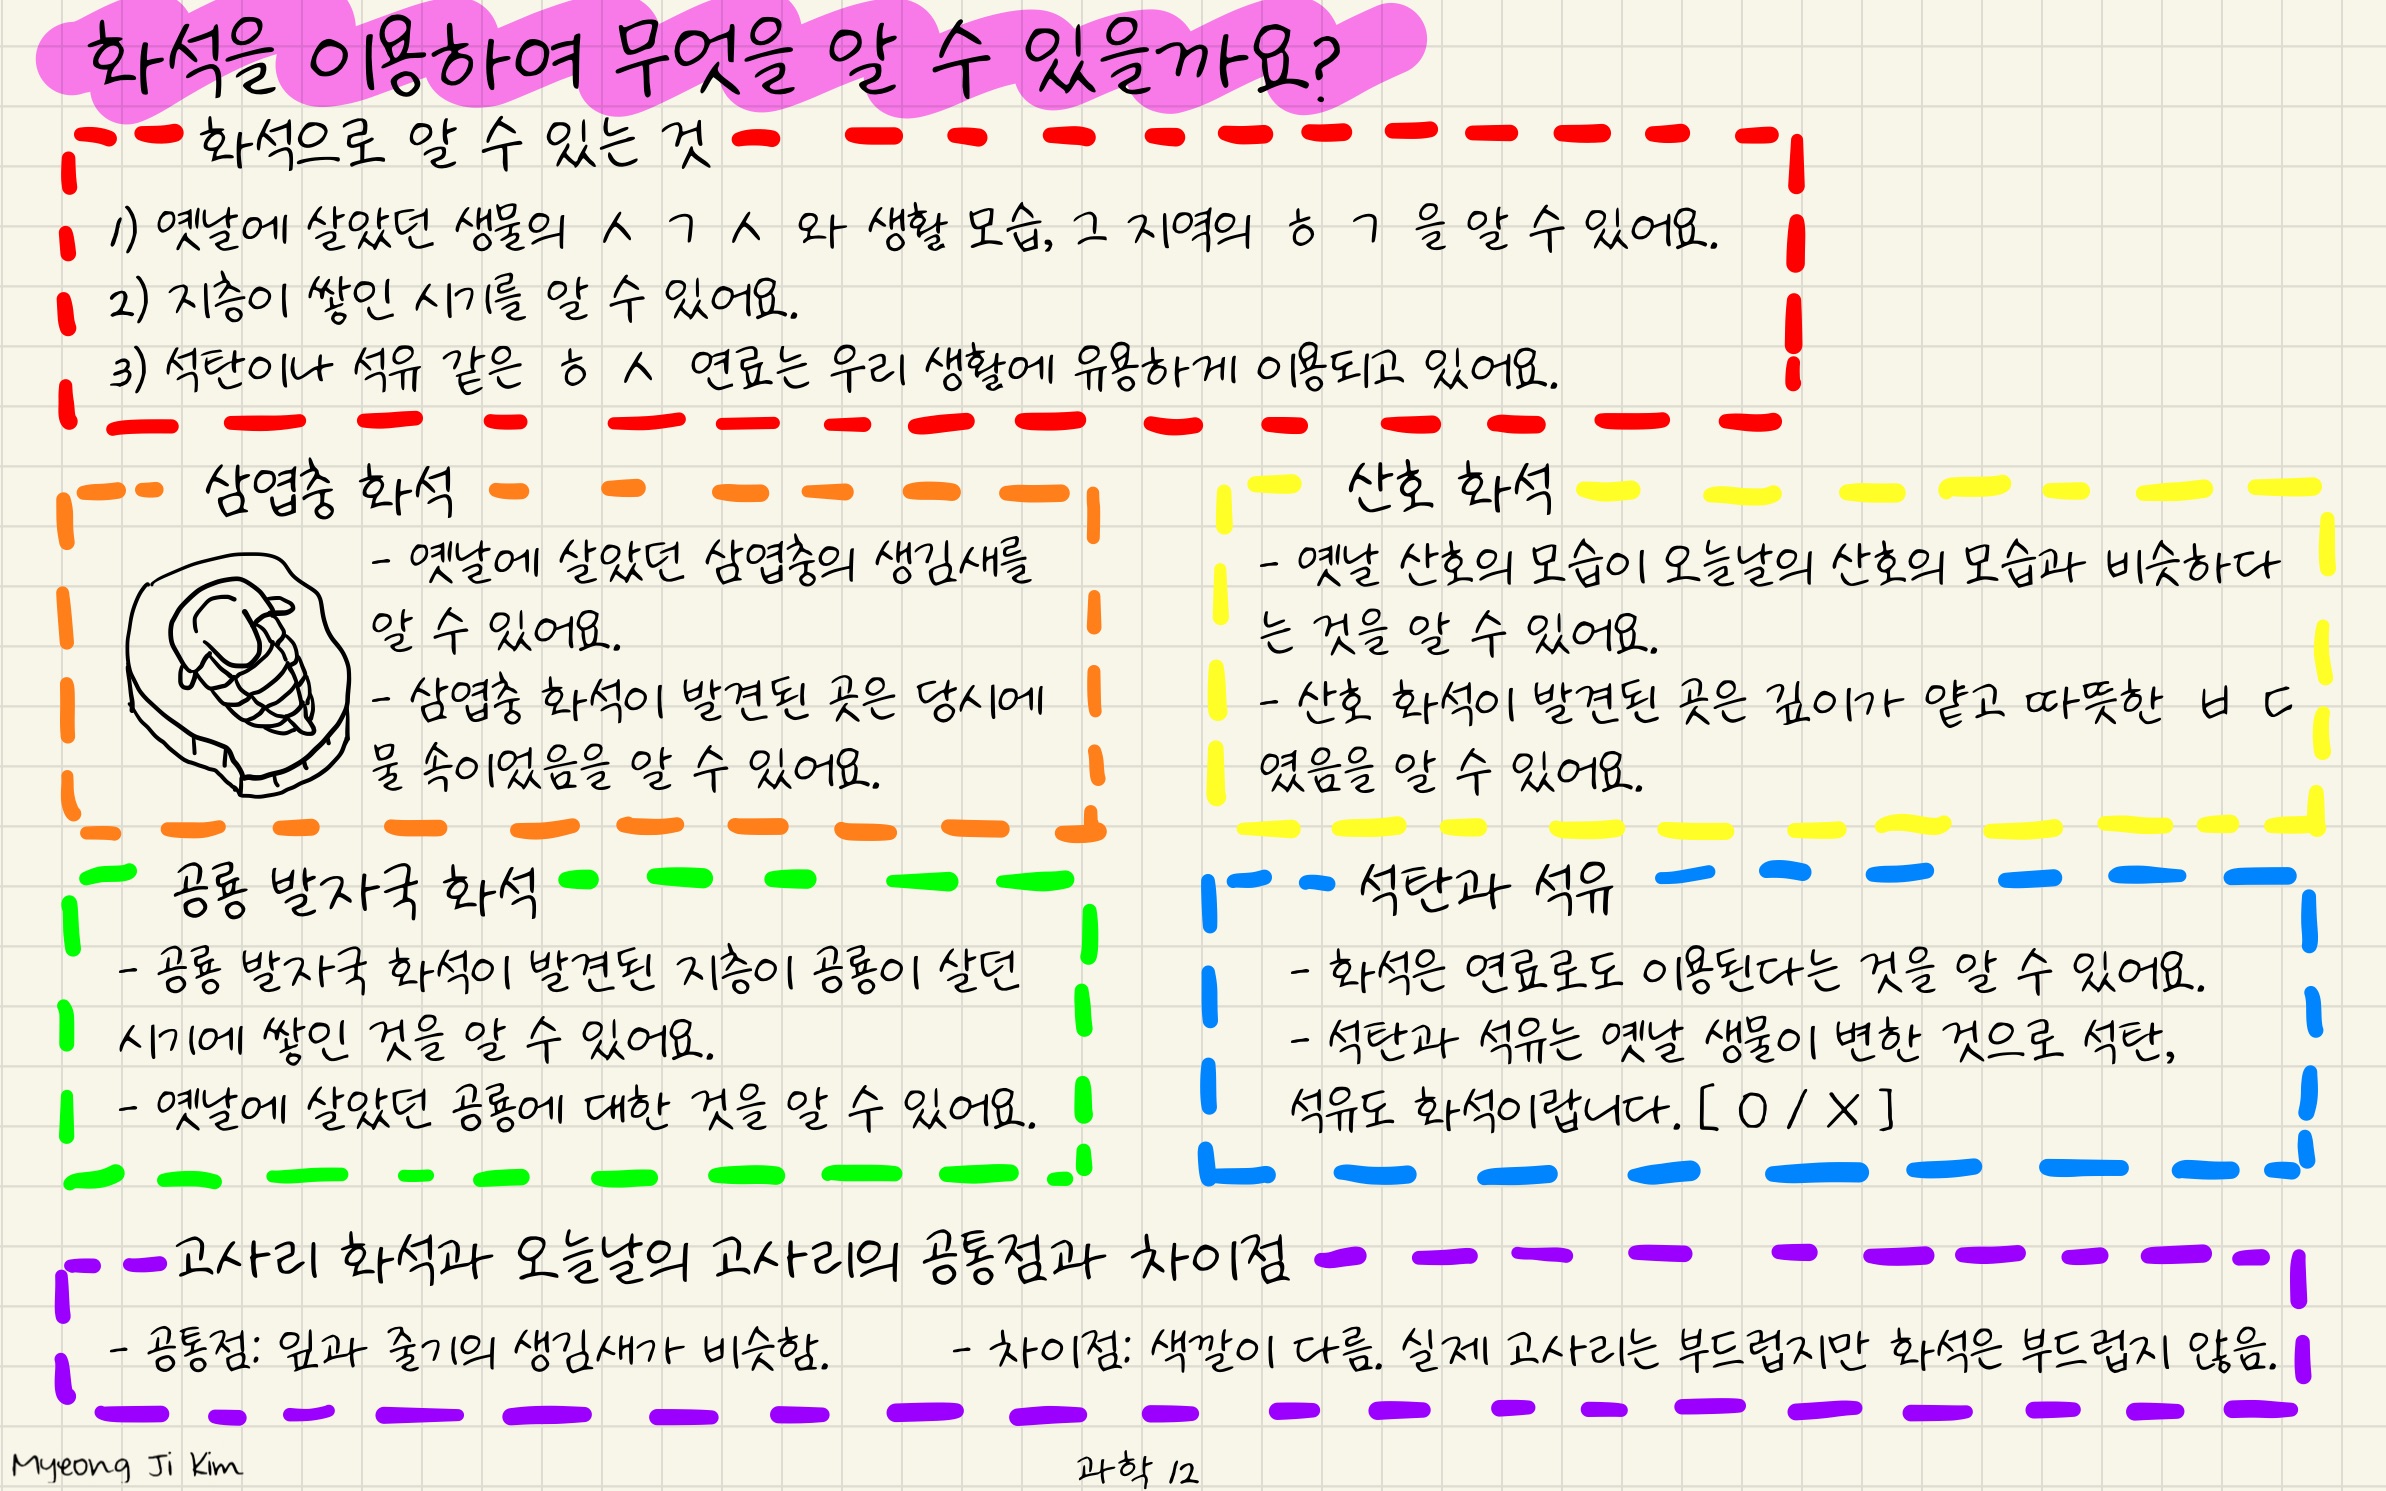 화석을 이용하여 무엇을 알 수 있을까요?
화석으로 알 수 있는 것
1) 옛날에 살았던 생물의 ㅅ ㄱ ㅅ 와 생활 모습, 그 지역의 ㅎ ㄱ 을 알 수 있어요.
2) 지층이 쌓인 시기를 알 수 있어요.
3) 석탄이나 석유 같은 ㅎ ㅅ 연료는 우리 생활에 유용하게 이용되고 있어요.
삼엽충 화석
- 옛날에 살았던 삼엽충의 생김새를
알 수 있어요.
- 삼엽충 화석이 발견된 곳은 당시에
물 속이었음을 알 수 있어요.
산호 화석
- 옛날 산호의 모습이 오늘날의 산호의 모습과 비슷하다
는 것을 알 수 있어요.
- 산호 화석이 발견된 곳은 깊이가 얕고 따뜻한 ㅂ ㄷ
였음을 알 수 있어요.
공룡 발자국 화석
- 공룡 발자국 화석이 발견된 지층이 공룡이 살던
시기에 쌓인 것을 알 수 있어요.
- 옛날에 살았던 공룡에 대한 것을 알 수 있어요.
석탄과 석유
- 화석은 연료로도 이용된다는 것을 알 수 있어요.
- 석탄과 석유는 옛날 생물이 변한 것으로 석탄,
석유도 화석이랍니다. [ O / X ]
고사리 화석과 오늘날의 고사리의 공통점과 차이점
- 공통점: 잎과 줄기의 생김새가 비슷함.
- 차이점: 색깔이 다름. 실제 고사리는 부드럽지만 화석은 부드럽지 않음.
Myeong Ji Kim
과학 12